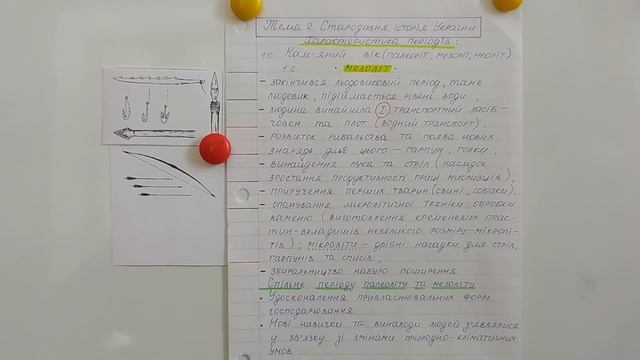 Тема 2. Стародавня історія України
Характеристика періодів:
1.0. Кам'яний вік (палеоліт, мезоліт, неоліт)
1.2. • Мезоліт •
– закінчився льодовиковий період, тане
льодовик, підіймається рівень води;
– людина винайшла I транспортний засіб –
човен та пліт (водний транспорт);
– розвиток рибальства та поява нових
знарядь для цього – гарпун, голки;
– винайдення лука та стріл (наслідок:
зростання продуктивності праці мисливців);
– приручення перших тварин (свині, собаки);
– опанування мікролітичної техніки обробки
каменю (виготовлення кременевих плас-
тин-вкладишів невеликого розміру-мікролі-
тів); мікроліти – дрібні насадки для стріл,
гарпунів та списів;
– збиральництво набуло поширення
Спільне періоду палеоліту та мезоліту
• Удосконалення привласнювальних форм
господарювання.
• Нові навички та винаходи людей з'являлися
у зв'язку зі змінами природно-кліматичних
умов.